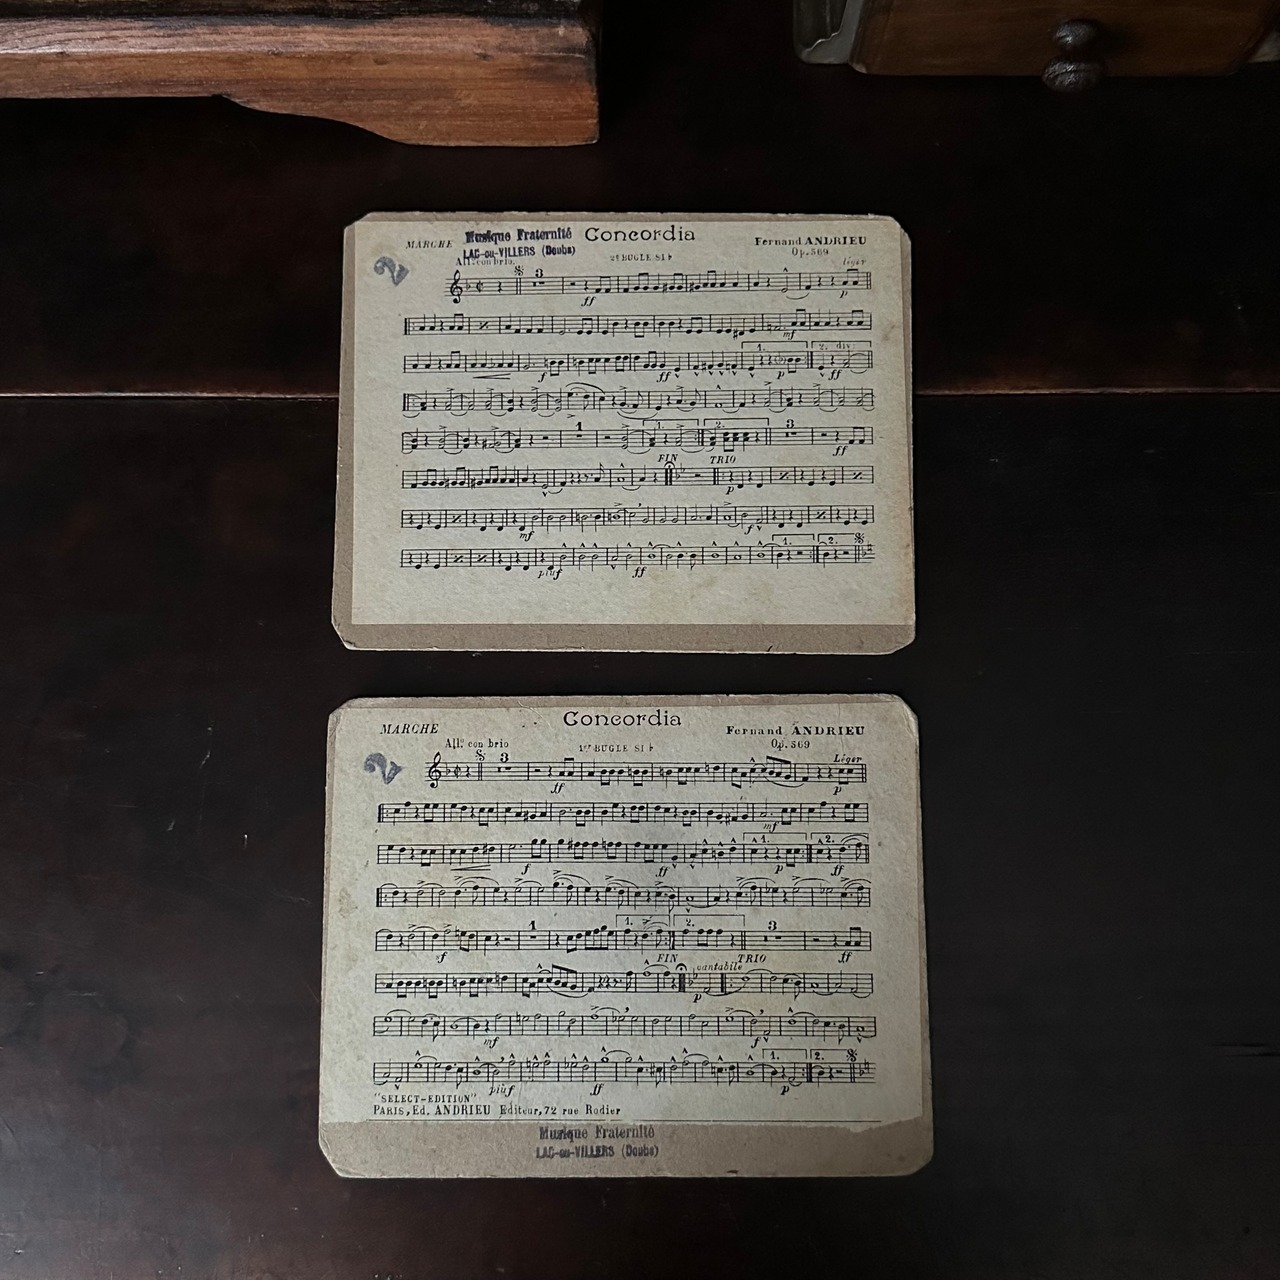 2
MARCHE Musique Fraternité Concordia Fernand ANDRIEU
LAC-ou-VILLERS (Doubs) Op. 569
All.º con brio. 2º BUGLE SI♭ léger
3
ff p
mf
1. 2. div:
f ff p ff
1 1. 2. 3
ff
FIN TRIO
p
mf f
1. 2.
più f ff
2
MARCHE Concordia Fernand ANDRIEU
All.º con brio 1er BUGLE SI♭ Op. 569
3 Léger
ff p
mf
1. 2.
f ff p ff
1 1. 2. 3
sf ff
FIN TRIO
cantabile
p
mf f
1. 2.
più f ff p
"SELECT-EDITION"
PARIS, Ed. ANDRIEU Editeur, 72 rue Rodier
Musique Fraternité
LAC-ou-VILLERS (Doubs)